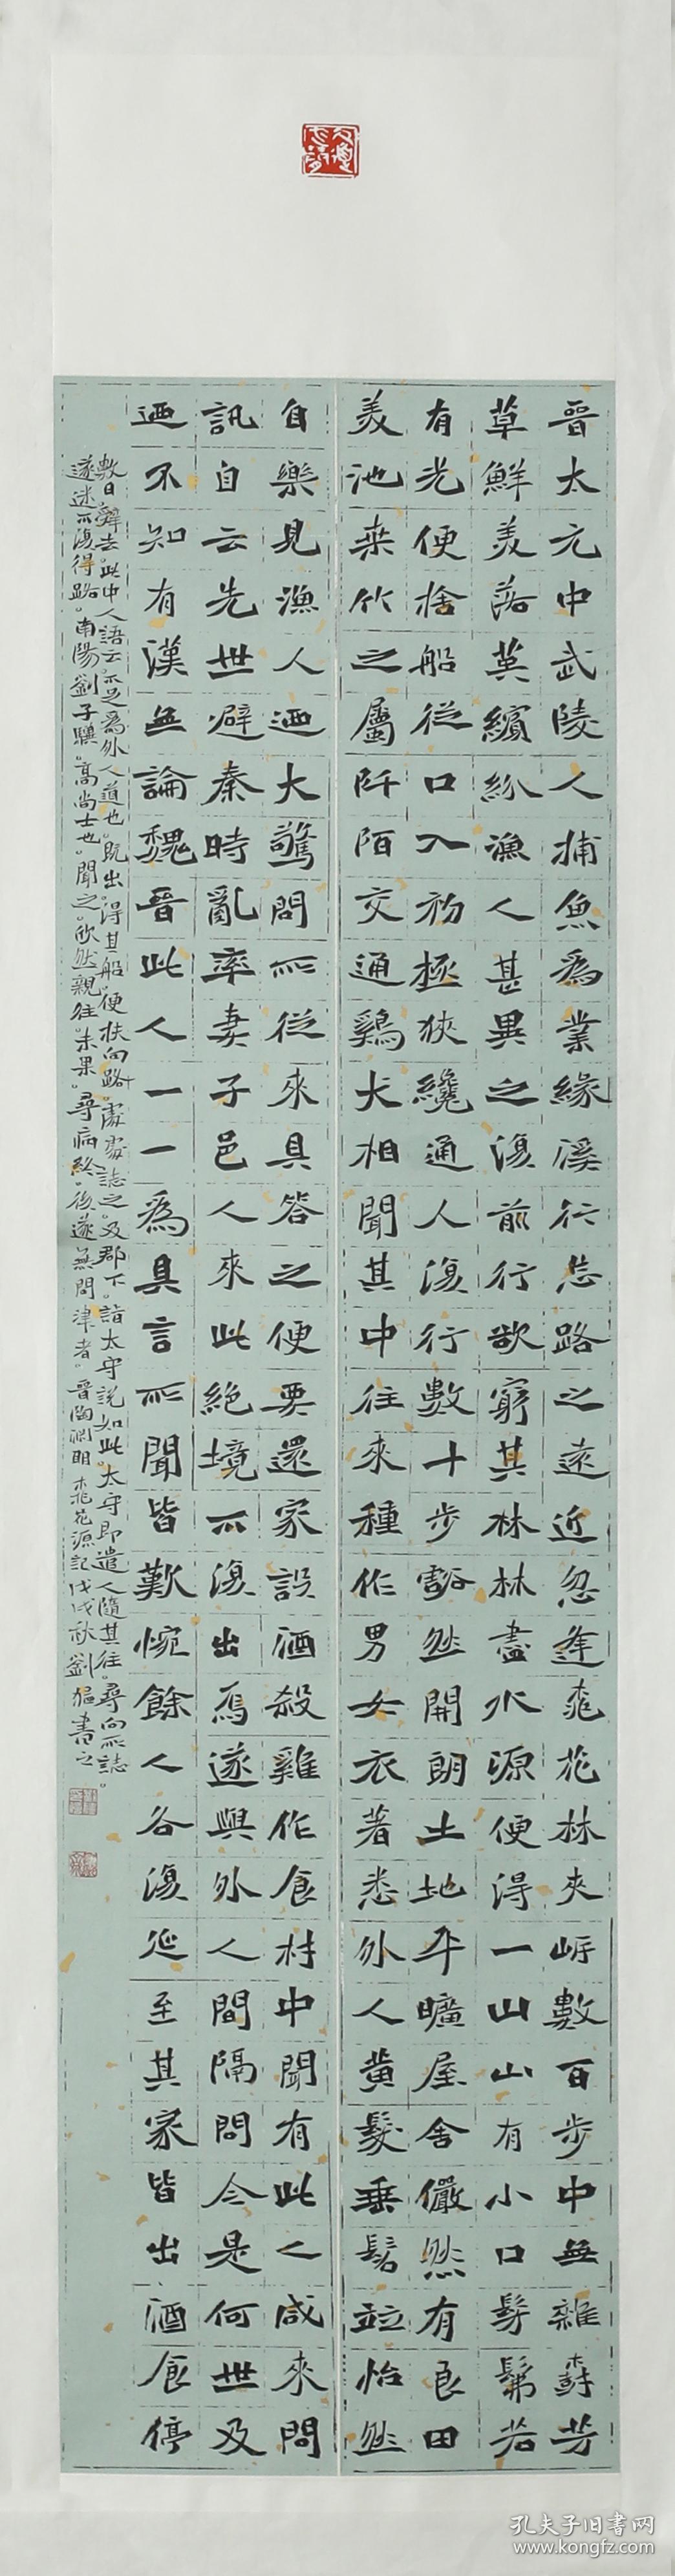 晉太元中武陵人捕魚爲業緣溪行忘路之遠近忽逢桃花林夾岸數百步中無雜樹芳
草鮮美落英繽紛漁人甚異之復前行欲窮其林林盡水源便得一山山有小口髣髴若
有光便捨船從口入初極狹纔通人復行數十步豁然開朗土地平曠屋舍儼然有良田
美池桑竹之屬阡陌交通鷄犬相聞其中往來種作男女衣著悉外人黃髮垂髫竝怡然
自樂見漁人迺大驚問所從來具答之便要還家設酒殺雞作食村中聞有此人咸來問
訊自云先世避秦時亂率妻子邑人來此絕境不復出焉遂與外人間隔問今是何世及
迺不知有漢無論魏晉此人一一爲具言所聞皆歎惋餘人各復延至其家皆出酒食停
數日辭去。此中人語云。不足爲外人道也。既出。得其船。便扶向路。處處誌之。及郡下。詣太守說如此。太守即遣人隨其往。尋向所誌。
遂迷不復得路。南陽劉子驥。高尚士也。聞之。欣然親往。未果。尋病終。後遂無問津者。晉陶淵明桃花源記戊戌秋劉 書之
孔夫子旧书网
www.kongfz.com